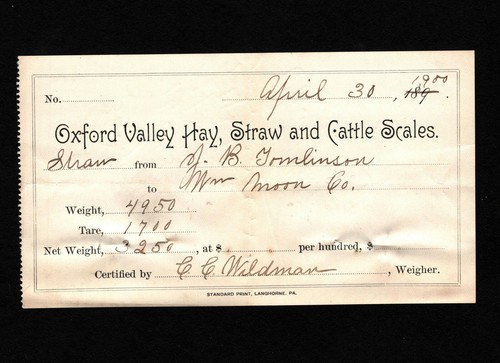 1900
No. April 30, 189 .
Oxford Valley Hay, Straw and Cattle Scales.
Straw from J. B. Tomlinson
to Wm Moon Co.
Weight, 4950
Tare, 1700
Net Weight, 3250, at $ per hundred, $
Certified by C C Wildman, Weigher.
STANDARD PRINT, LANGHORNE, PA.